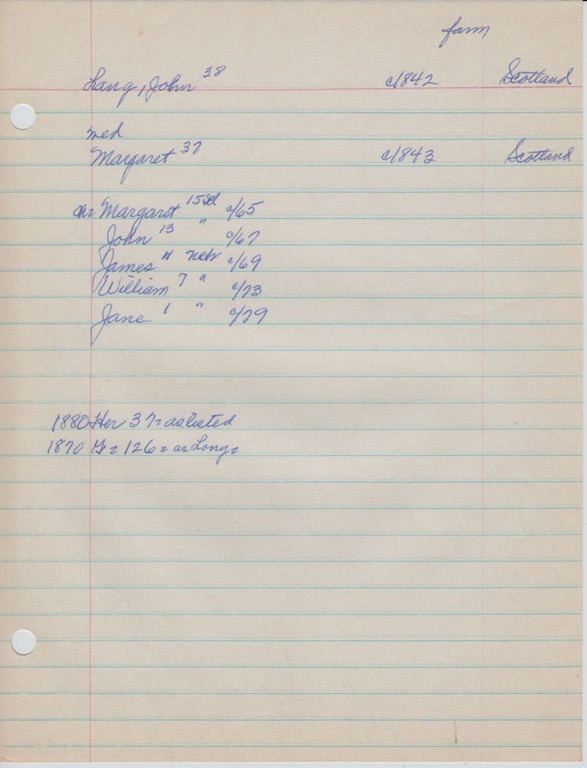 farm
Lang, John 38 c/1842 Scotland
med
Margaret 37 c/1843 Scotland
ch= Margaret 15 c/65
John 13 " c/67
James 11 Neb c/69
William 7 " c/73
Jane 1 " c/79
1880 Her 37= as listed
1870 126= as Long=